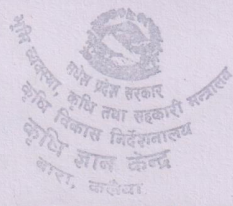 मधेस प्रदेश सरकार
भूमि व्यवस्था, कृषि तथा सहकारी मन्त्रालय
कृषि विकास निर्देशनालय
कृषि ज्ञान केन्द्र
बारा, कलैया